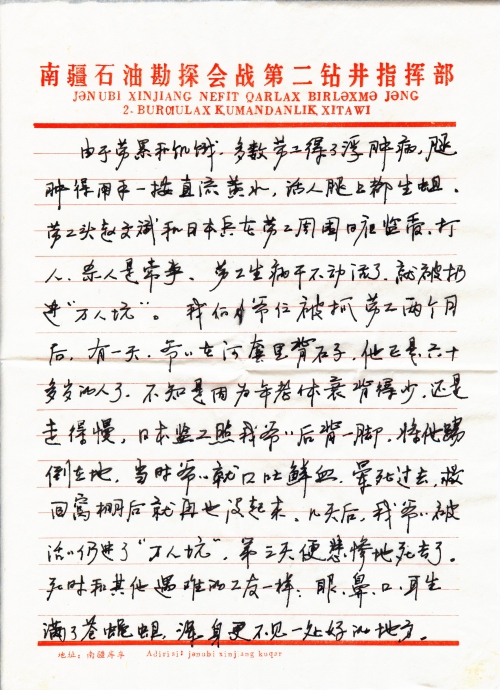 南疆石油勘探会战第二钻井指挥部
JƏNUBI XINJIANG NEFIT QARLAX BIRLƏXMƏ JƏNG
2-BUROIULAX KUMANDANLIK XITAWI
由于劳累和饥饿，多数劳工得了浮肿病，腿
肿得用手一按直流黄水，活人腿上都生蛆。
劳工头赵文斌和日本兵在劳工周围日夜监看，打
人、杀人是常事。劳工生病干不动活了，就被扔
进“万人坑”。我们爷爷被抓劳工两个月
后，有一天，爷爷在河套里背石子，他已是六十
多岁的人了，不知是因为年老体衰背得少，还是
走得慢，日本监工照我爷爷后背一脚，将他踢
倒在地，当时爷爷就口吐鲜血，晕死过去，救
回窝棚后就再也没起来。几天后，我爷爷被
活活扔进了“万人坑”，第三天便悲惨地死去了。
死时和其他遇难的工友一样：眼、鼻、口、耳生
满了苍蝇蛆，浑身更不见一处好的地方。
地址：南疆库车 Adirisi: janubi xinjiang kuqer